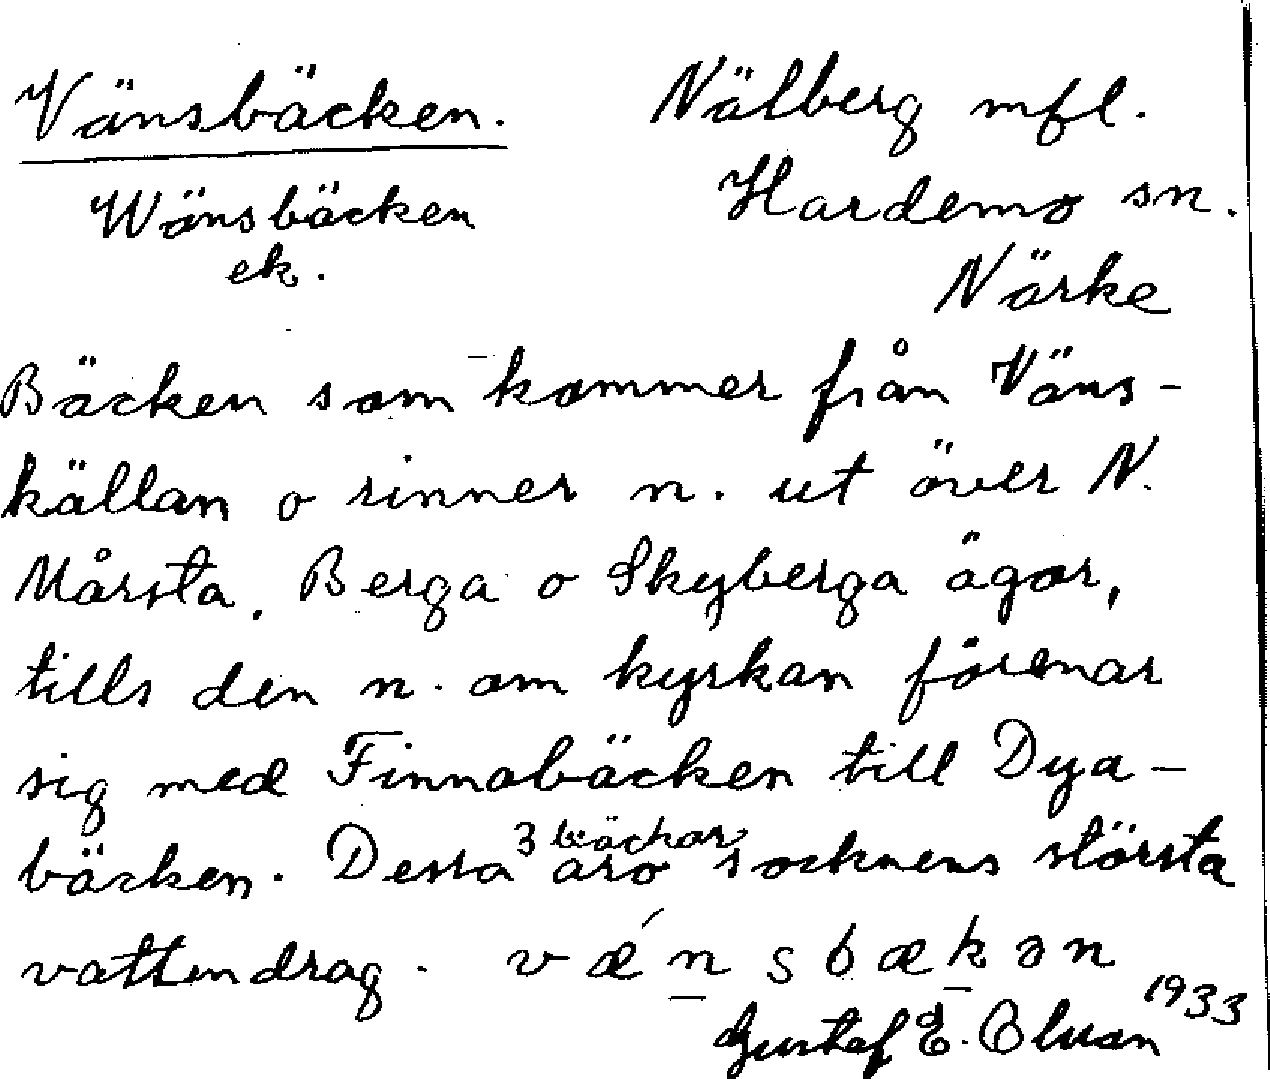 Vänsbäcken. Nälberg mfl.
Wänsbäcken Hardemo sn.
ek. Närke
Bäcken som kommer från Väns-
källan o rinner n. ut över N.
Mårsta, Berga o Skyberga ägor,
tills den n. om kyrkan förenar
sig med Finnabäcken till Dya-
bäcken. Dessa 3 bäckar äro socknens största
vattendrag. vǽnsbækən
Gustaf E. Olsson 1933